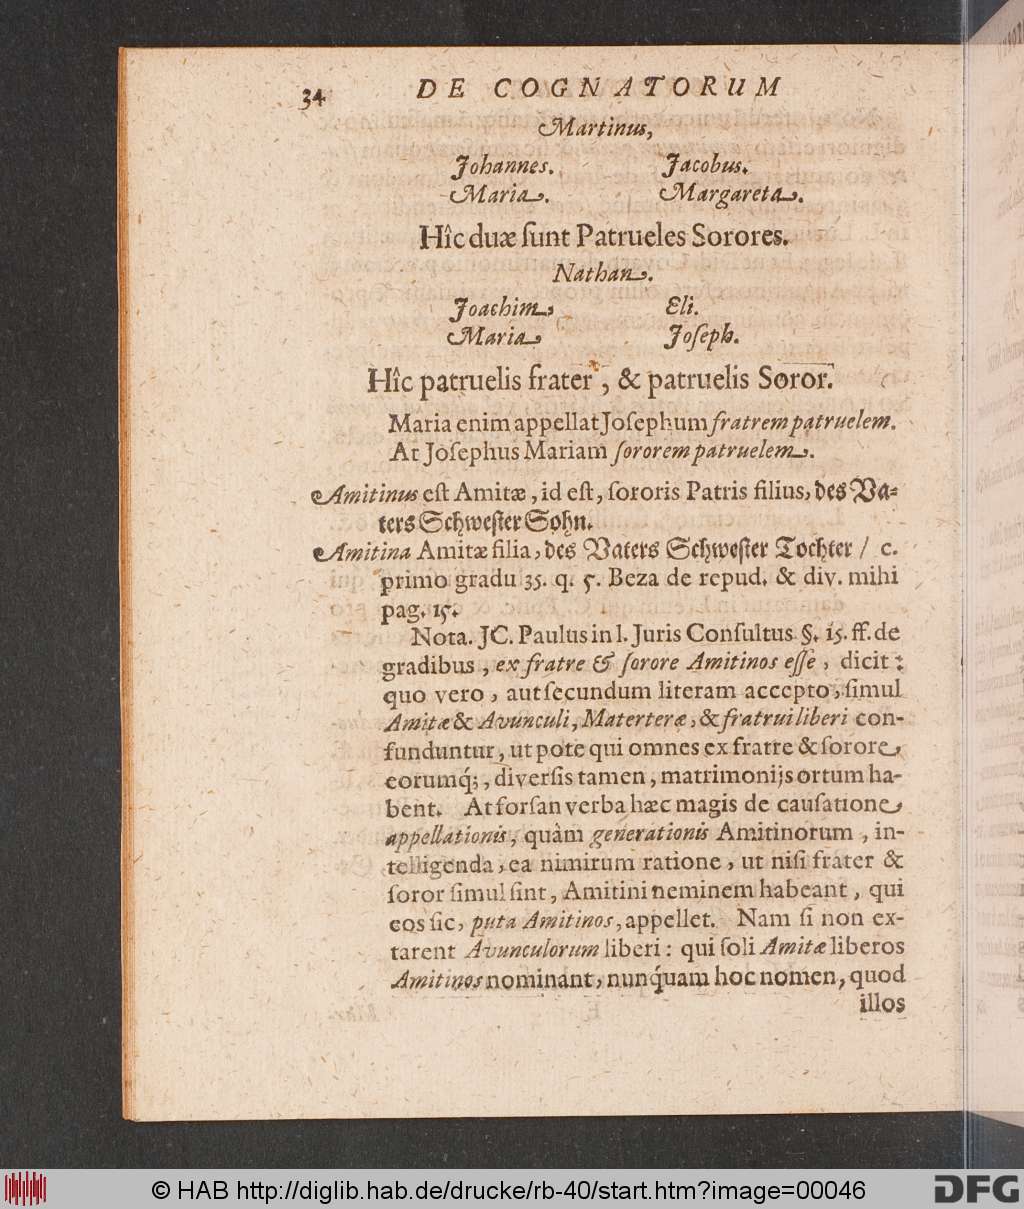 34 DE COGNATORUM
Martinus,
Johannes. Jacobus.
Maria. Margareta.
Hîc duæ ſunt Patrueles Sorores.
Nathan.
Joachim, Eli.
Maria, Joſeph.
Hîc patruelis frater, & patruelis Soror.
Maria enim appellat Joſephum fratrem patruelem.
At Joſephus Mariam ſororem patruelem.
Amitinus eſt Amitæ, id eſt, ſororis Patris filius, des Va-
ters Schweſter Sohn.
Amitina Amitæ filia, des Vaters Schweſter Tochter / c.
primo gradu 35. q. 5. Beza de repud. & div. mihi
pag. 15.
Nota. JC. Paulus in l. Juris Conſultus §. 15. ff. de
gradibus, ex fratre & ſorore Amitinos eſſe, dicit:
quo vero, aut ſecundum literam accepto, ſimul
Amitæ & Avunculi, Materteræ, & fratrui liberi con-
funduntur, ut pote qui omnes ex fratre & ſorore,
eorumq́;, diverſis tamen, matrimonijs ortum ha-
bent. At forſan verba hæc magis de cauſatione
appellationis, quàm generationis Amitinorum, in-
telligenda, ea nimirum ratione, ut niſi frater &
ſoror ſimul ſint, Amitini neminem habeant, qui
eos ſic, puta Amitinos, appellet. Nam ſi non ex-
tarent Avunculorum liberi: qui ſoli Amitæ liberos
Amitinos nominant, nunq́uam hoc nomen, quod
illos
© HAB http://diglib.hab.de/drucke/rb-40/start.htm?image=00046
DFG